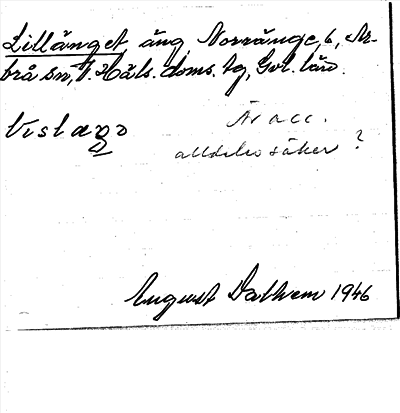 Lillänget äng, Norränge, 6, Ar-
brå sn, V. Häls. doms. tg, Gvl. län.
Är acc.
alldeles säker?
August Dalhem 1946